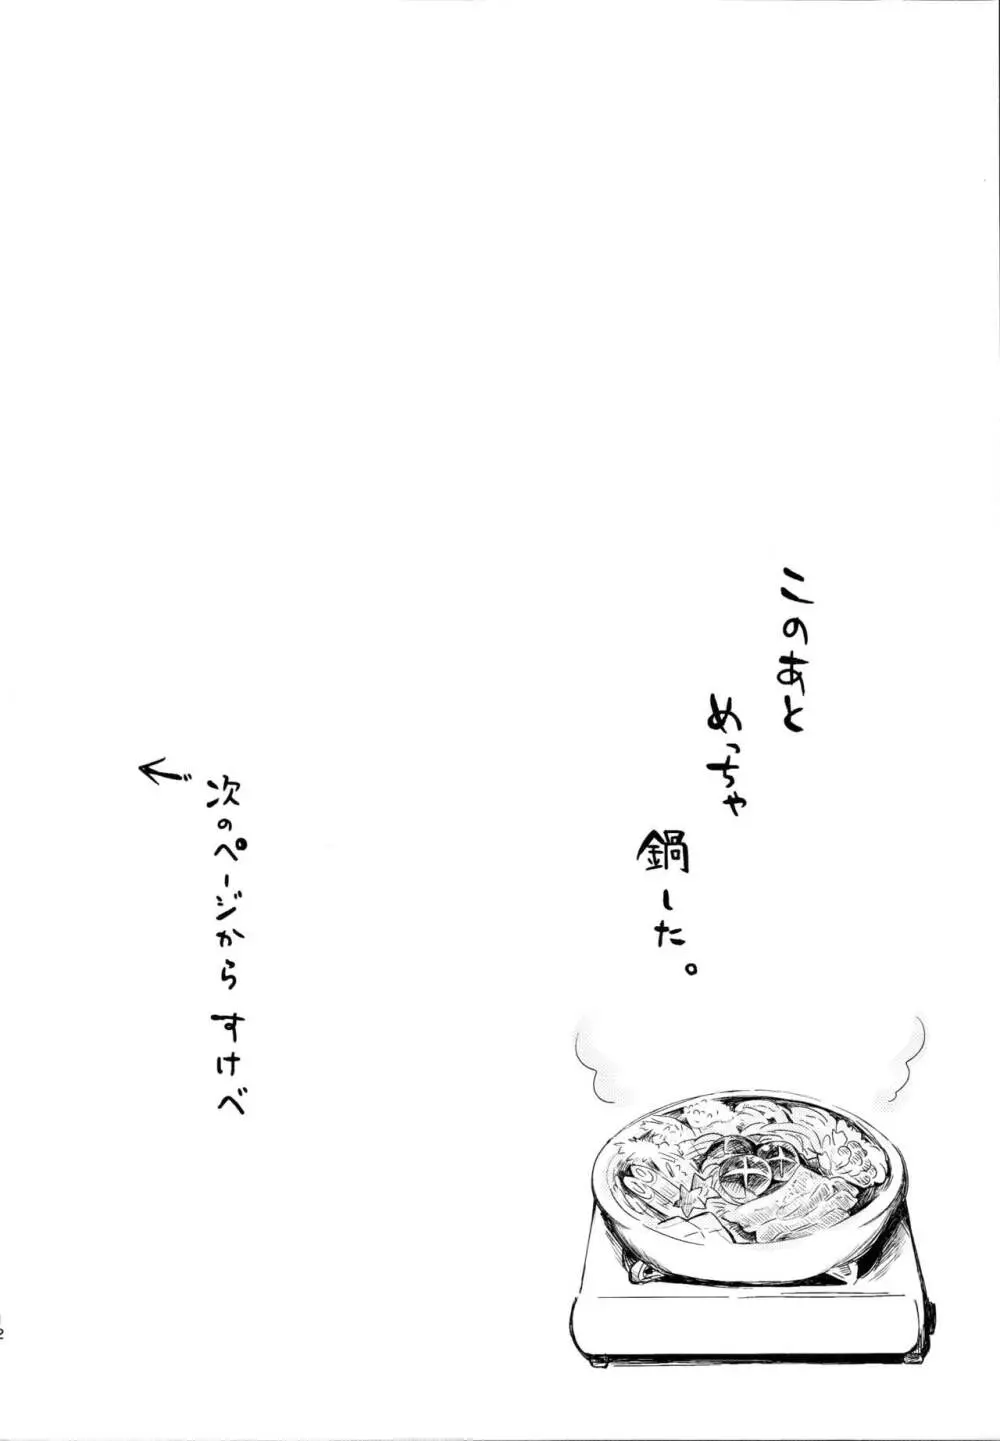 このあと
めっちゃ
鍋した。
次のページから すけべ